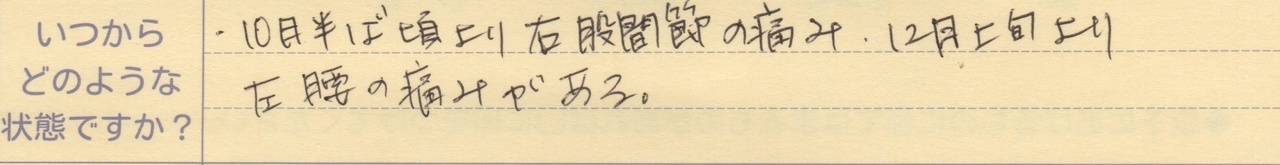 いつから
どのような
状態ですか？
・10月半ば頃より右股間節の痛み．12月上旬より
左腰の痛みがある。